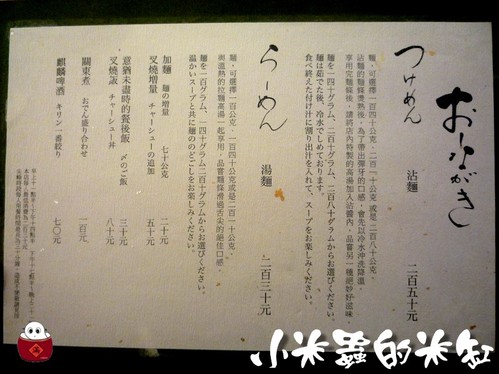 おしながき
つけめん 沾麵 二百五十元
麵，可選擇一百四十公克、二百一十公克 或是二百八十公克。
沾麵的麵條燙熟後，為了帶出彈牙的口感，會先以冷水沖洗降溫。
享用完麵條後，請將店內特製的高湯加入沾醬內，品嘗另一種絕妙好滋味
麺を一百四十グラム、二百一十グラム、二百八十グラムからお選びください。
麺は茹でた後、冷水でしめております。
食べ終えた付け汁に割り出汁を入れて、スープをお楽しみください。
らーめん 湯麵 二百三十元
麵，可選擇一百公克、一百四十公克或是二百一十公克。
與溫熱的拉麵高湯一起享用，品嘗麵條滑過舌尖的絕佳口感。
麺を一百グラム、一百四十グラム、二百一十グラムからお選びください。
温かいスープと共に麺ののどごしをお楽しみください。
加麵 麺の増量 七十公克 二十元
叉燒增量 チャーシューの追加 五十元
意猶未盡時的餐後飯 〆のご飯 三十元
叉燒飯 チャーシュー丼 八十元
關東煮 おでん盛り合わせ 一百元
麒麟啤酒 キリン一番絞り 七〇元
小米蟲的米缸